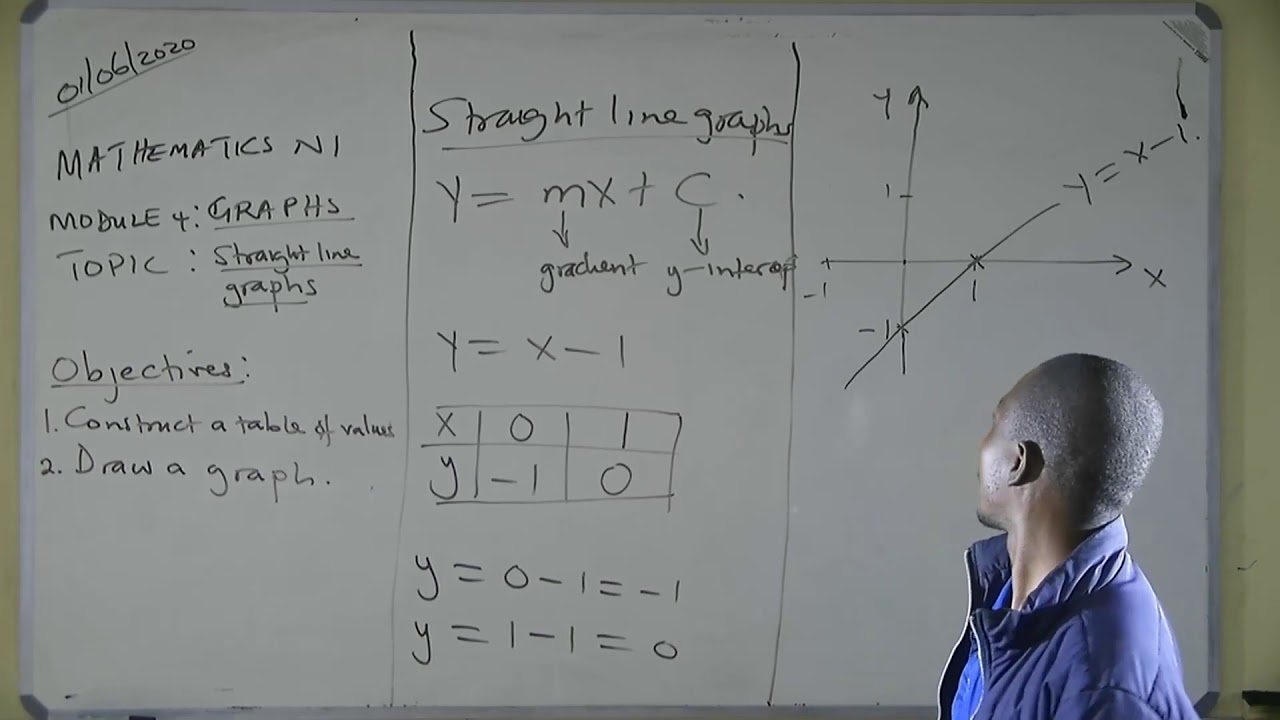 01/06/2020
MATHEMATICS N1
MODULE 4: GRAPHS
TOPIC : Straight line
graphs
Objectives:
1. Construct a table of values
2. Draw a graph.
Straight line graphs
Y = mX + C.
gradient y-intercept
Y = X - 1
X 0 1
y -1 0
y = 0 - 1 = -1
y = 1 - 1 = 0
Y
Y = X - 1.
1
-1 1 X
-1